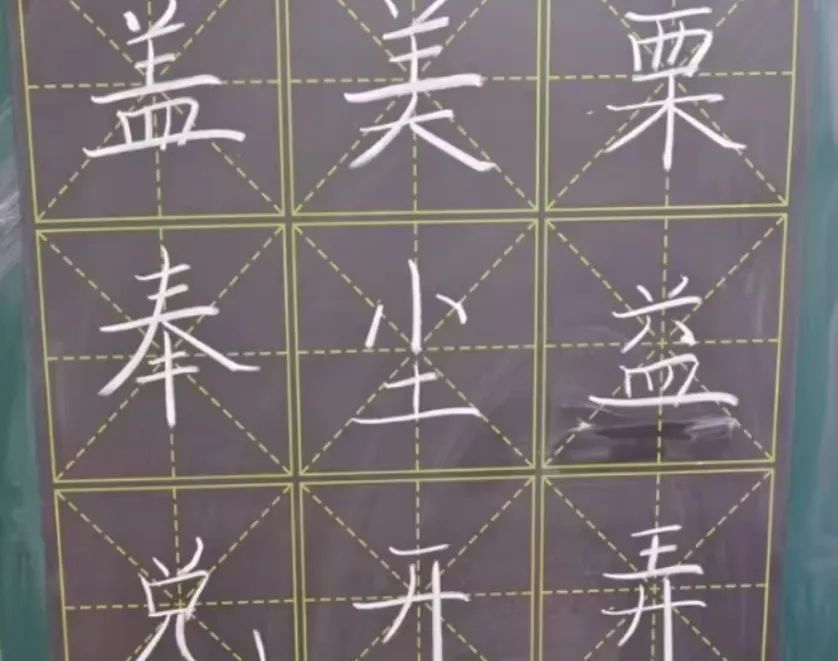 盖美栗
奉尘益
兑开弄